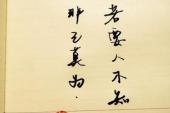 若要人不知
非己莫为.